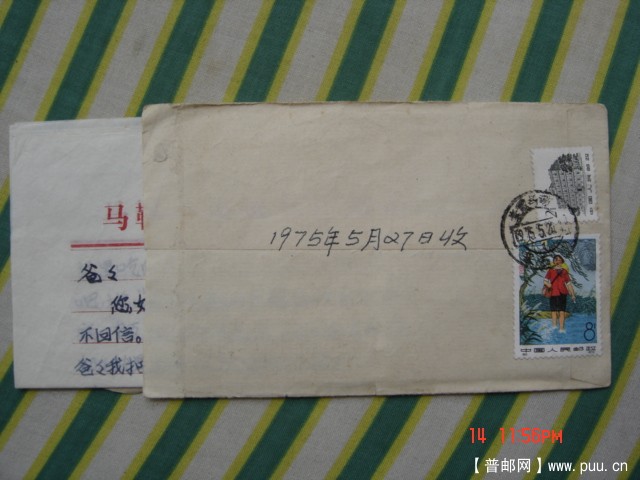 马
爸々
您好
不回信。
爸々我把
1975年5月27日收
8
中国人民邮政
14 11:56PM
【普邮网】www.puu.cn